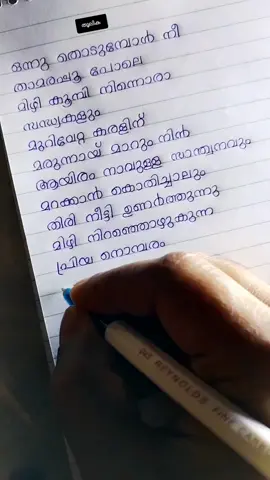 തൂലിക
ഒന്നു തൊടുമ്പോൾ നീ
താമരപ്പൂ പോലെ
മിഴി കൂമ്പി നിന്നൊരാ
സന്ധ്യകളും
മുറിവേറ്റ കരളിന്
മരുന്നായ് മാറും നിൻ
ആയിരം നാവുള്ള സാന്ത്വനവും
മറക്കാൻ കൊതിച്ചാലും
തിരി നീട്ടി ഉണർത്തുന്നു
മിഴി നിറഞ്ഞൊഴുകുന്ന
പ്രിയ നൊമ്പരം
REYNOLDS FINE CARBURE